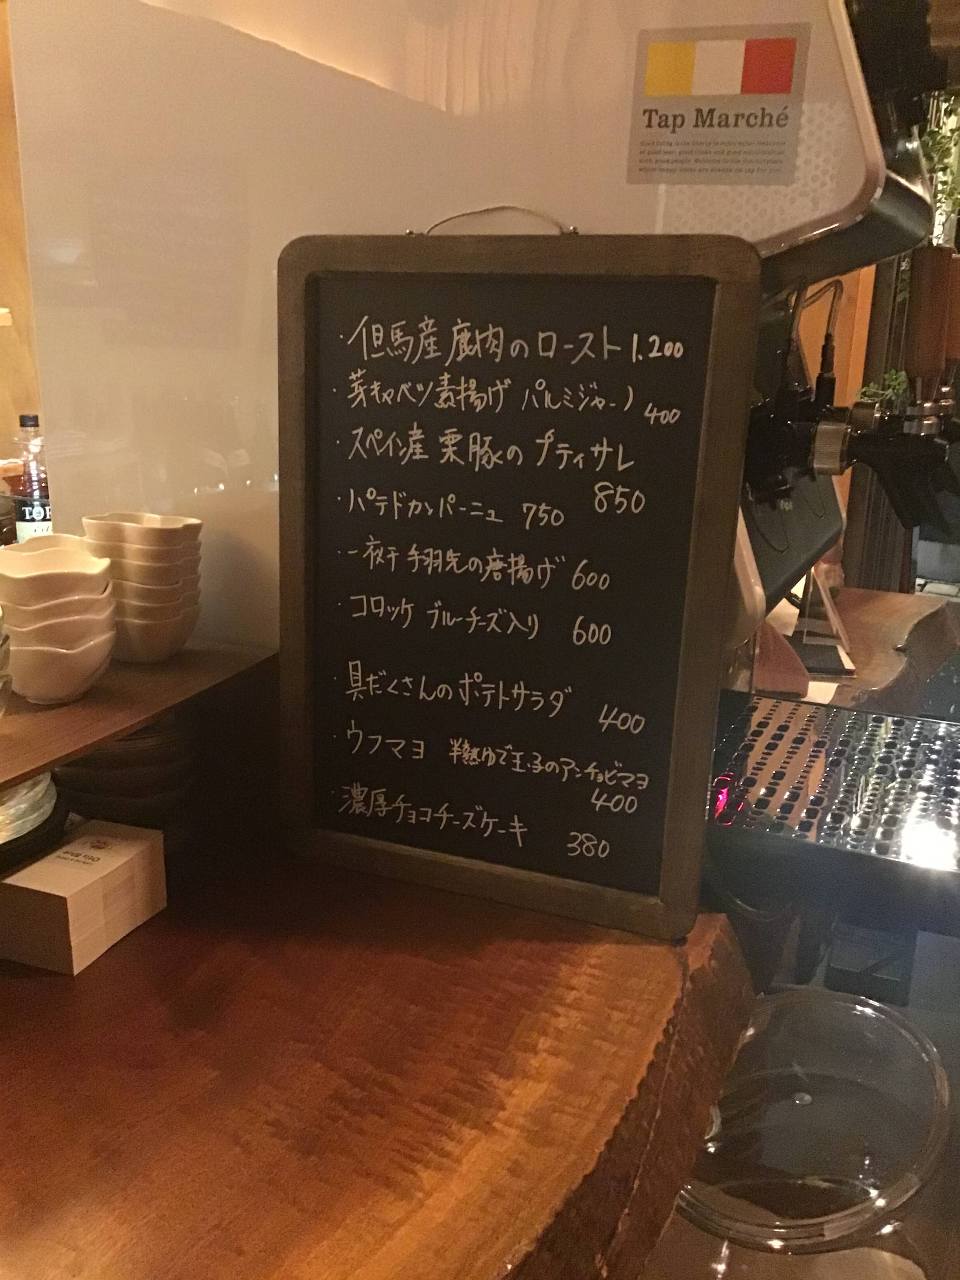 Tap Marché
・但馬産鹿肉のロースト 1.200
・芽キャベツ素揚げ パルミジャーノ
400
・スペイン産 栗豚のプティサレ
850
・パテドカンパーニュ 750
・一夜干手羽先の唐揚げ 600
・コロッケ ブルーチーズ入り 600
・具だくさんのポテトサラダ
400
・ウフマヨ 半熟ゆで玉子のアンチョビマヨ
400
・濃厚チョコチーズケーキ 380
TOR